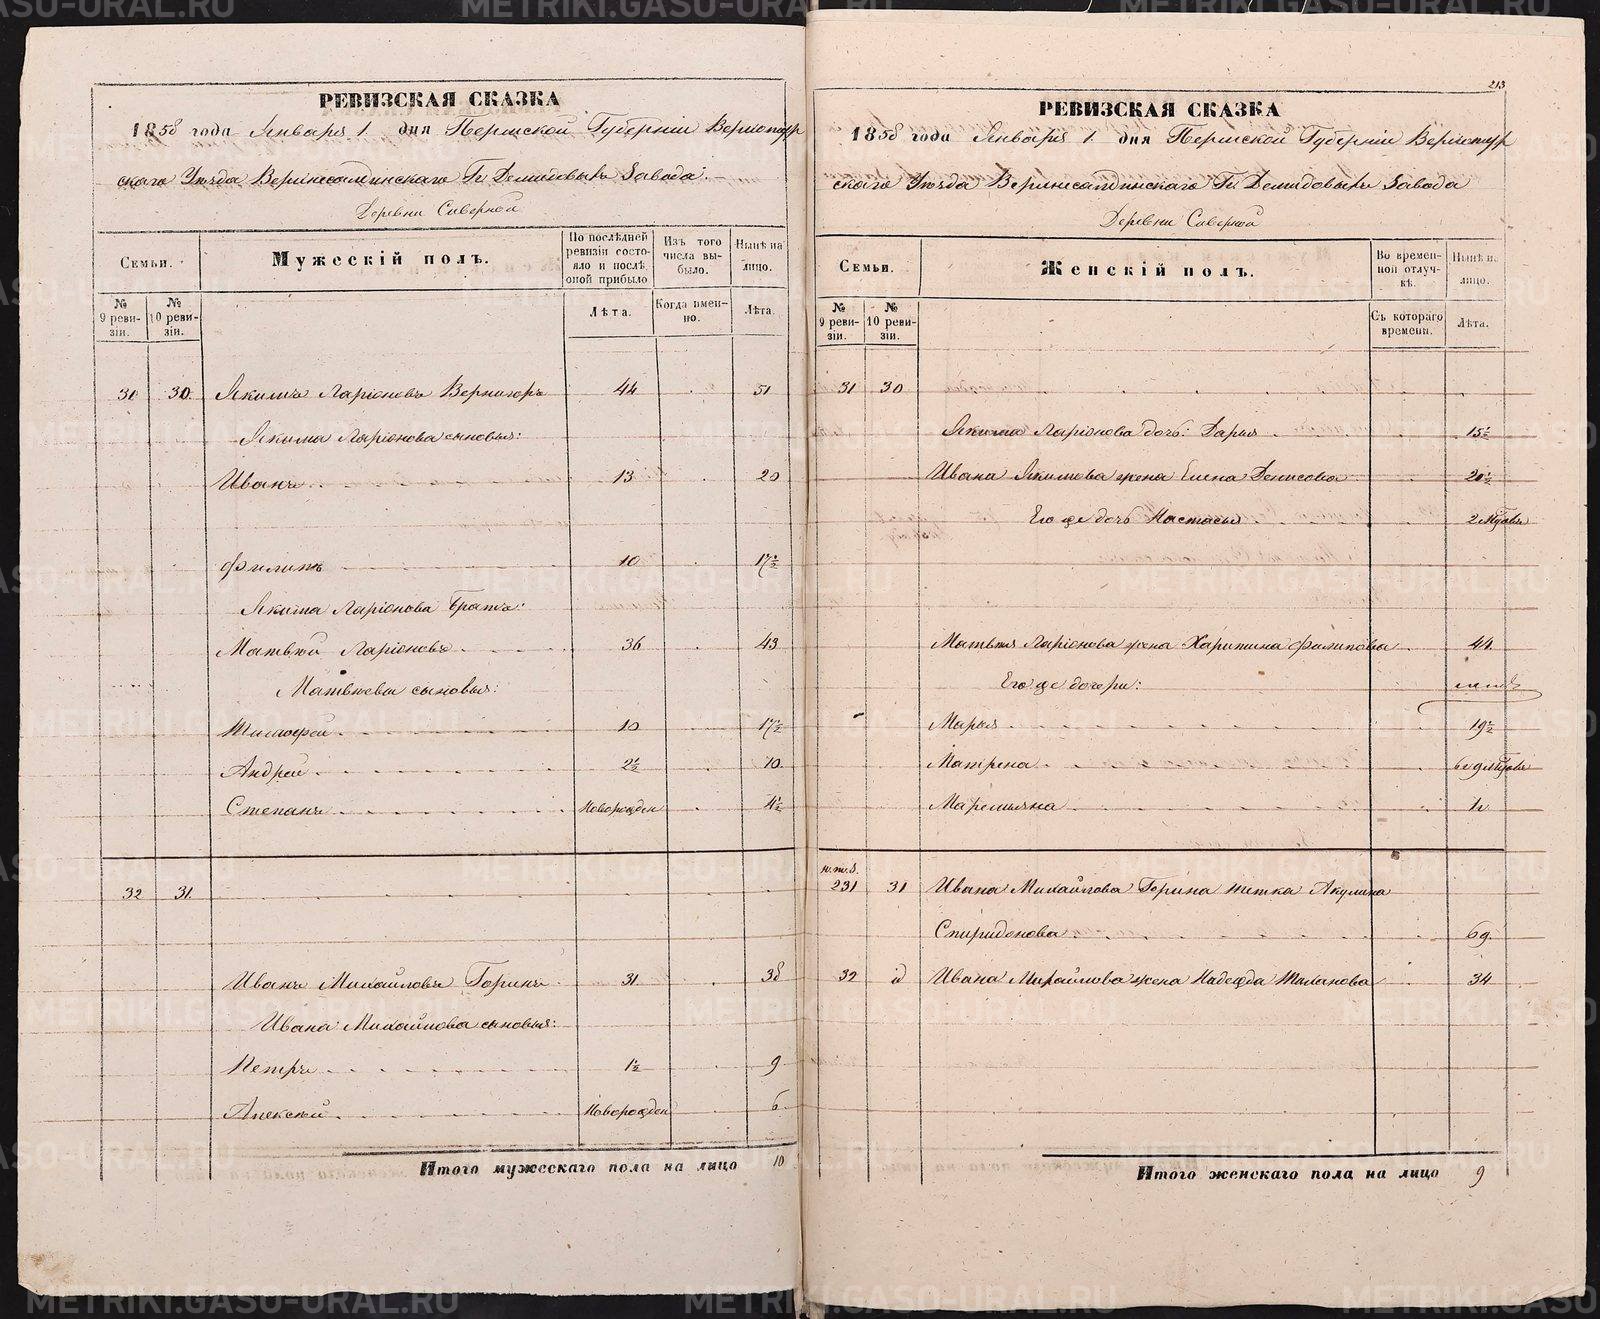 РЕВИЗСКАЯ СКАЗКА
1858 года Января 1 дня Пермской Губерніи Верхотур
скаго Уѣзда Верхнесалдинскаго Гг Демидовыхъ Завода.
Деревни Северной
Семьи.
Мужескій полъ.
По послѣдней ревизіи состояло и послѣ оной прибыло
Изъ того числа выбыло.
Нынѣ на лицо.
№ 9 ревизіи.
№ 10 ревизіи.
Лѣта.
Когда именно.
Лѣта.
31 30. Якимъ Ларіоновъ 44 51
Якима Ларіонова сыновья:
Иванъ 13 20
Филипъ 10 17½
Якима Ларіонова братъ:
Матвѣй Ларіоновъ 36 43
Матвѣева сыновья:
Тимофей 10 17½
Андрей 2½ 10.
Степанъ Новорожден 4½
32 31.
Иванъ Михайловъ Горинъ 31 38
Ивана Михайлова сыновья:
Петръ 1½ 9
Алексѣй Новорожден 6
Итого мужескаго пола на лицо 10
213
РЕВИЗСКАЯ СКАЗКА
1858 года Января 1 дня Пермской Губерніи Верхотур
скаго Уѣзда Верхнесалдинскаго Гг Демидовыхъ Завода
Деревни Северной
Семьи.
Женскій полъ.
Во временной отлучкѣ.
Нынѣ на лицо.
№ 9 ревизіи.
№ 10 ревизіи.
Съ котораго времени.
Лѣта.
31 30
Якима Ларіонова дочь: Дарья 15½
Ивана Якимова жена Елена Денисова 20½
Его же дочь Настасья 2
Матвѣя Ларіонова жена Харитина Филипова 44.
Его же дочери:
Марья 19½
Матрена
Маремьяна
231 31 Ивана Михайлова Горина тетка Акулина
Спиридонова 69.
32 Ивана Михайлова жена Надежда 34
Итого женскаго пола на лицо 9
METRIKI.GASO-URAL.RU